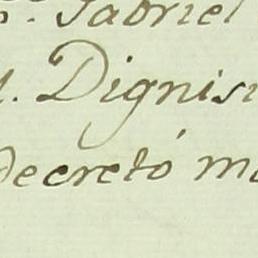 Gabriel
Dignisi
decretó m